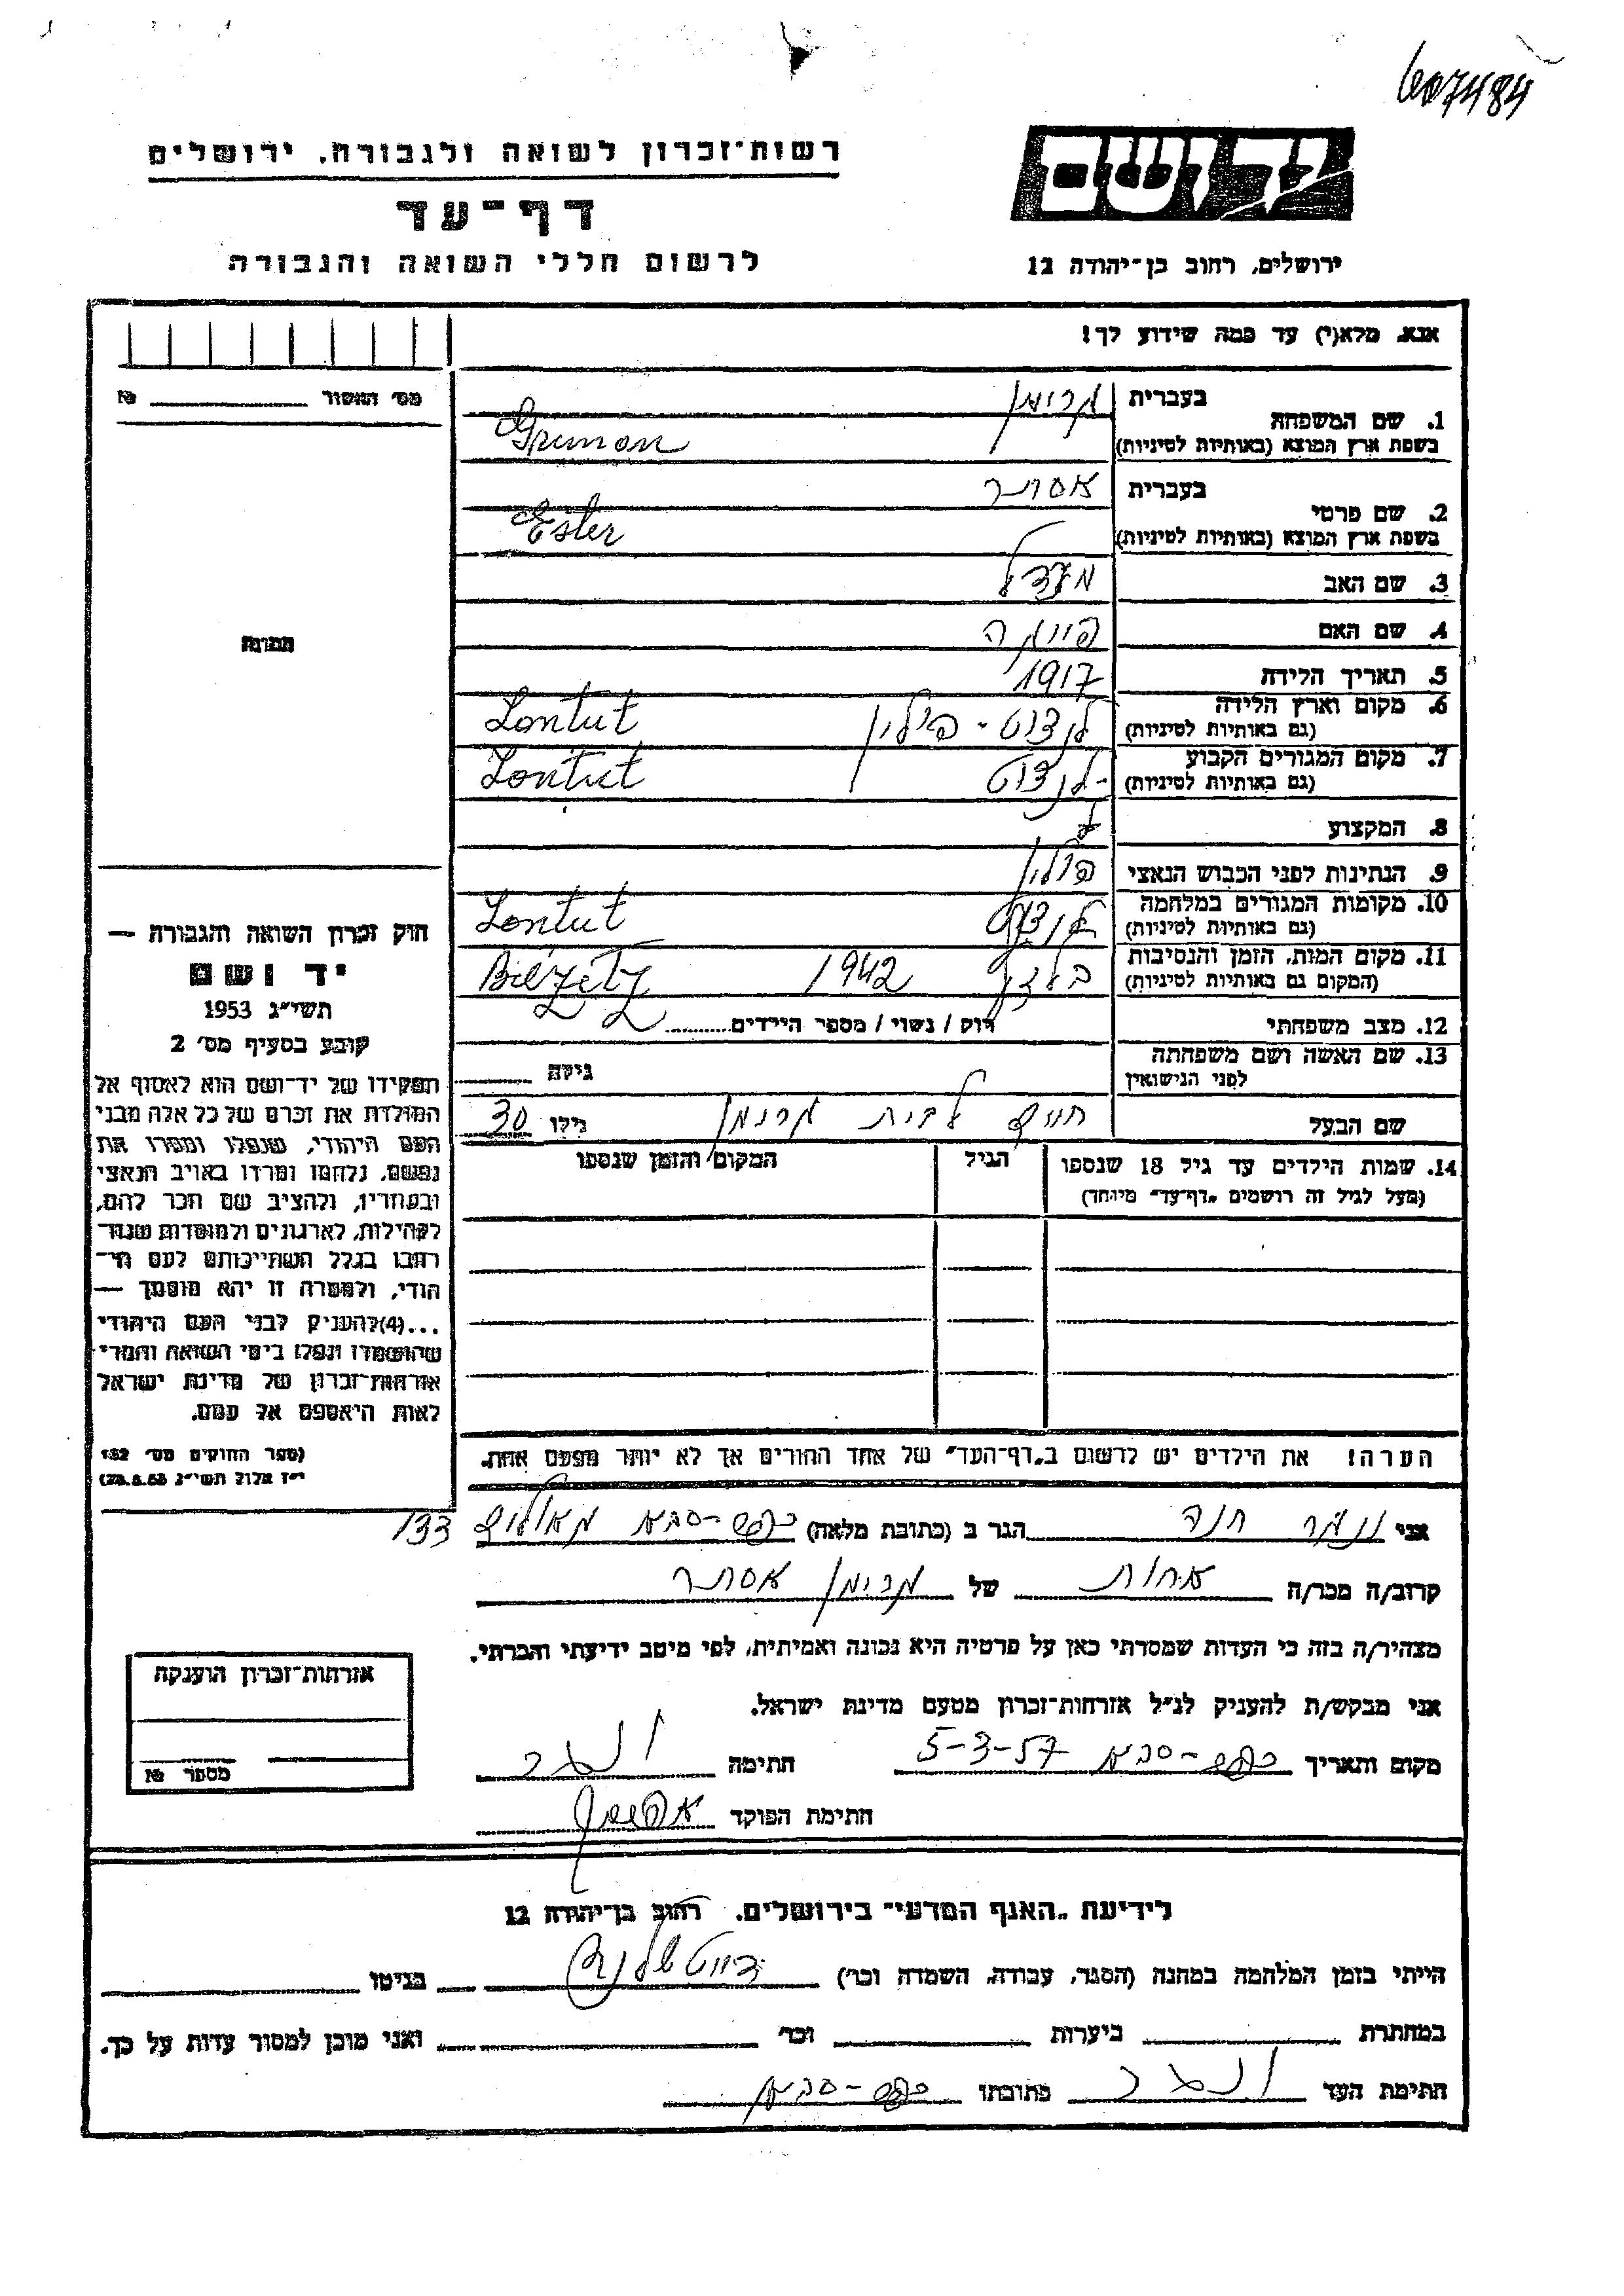 607484
רשות־זכרון לשואה ולגבורה, ירושלים
יד ושם
דף־עד
לרשום חללי השואה והגבורה
ירושלים, רחוב בן־יהודה 12
אנא, מלא(י) עד כמה שידוע לך!
מס׳ האשור №
1. שם המשפחה
בעברית גרינמן
בשפת ארץ המוצא (באותיות לטיניות) Grunman
2. שם פרטי
בעברית אסתר
בשפת ארץ המוצא (באותיות לטיניות) Ester
3. שם האב מנדל
4. שם האם
תמונה
5. תאריך הלידה 1917
6. מקום וארץ הלידה
(גם באותיות לטיניות) לנצוט - פולין Lontut
7. מקום המגורים הקבוע
(גם באותיות לטיניות) לנצוט Lontut
8. המקצוע
9. הנתינות לפני הכבוש הנאצי פולין
10. מקומות המגורים במלחמה
(גם באותיות לטיניות) לנצוט Lontut
11. מקום המות, הזמן והנסיבות
(המקום גם באותיות לטיניות) בלזץ 1942
12. מצב משפחתי רוק / נשוי / מספר הילדים
13. שם האשה ושם משפחתה
לפני הנישואין גילה
שם הבעל חיים לבית גרינמן גילו 30
14. שמות הילדים עד גיל 18 שנספו הגיל המקום והזמן שנספו
(מעל לגיל זה רושמים „דף־עד״ מיוחד)
הערה! את הילדים יש לרשום ב„דף־העד״ של אחד ההורים אך לא יותר מפעם אחת.
חוק זכרון השואה והגבורה —
יד ושם
תשי״ג 1953
קובע בסעיף מס׳ 2
תפקידו של יד־ושם הוא לאסוף אל
המולדת את זכרם של כל אלה מבני
העם היהודי, שנפלו ומסרו את
נפשם, נלחמו ומרדו באויב הנאצי
ובעוזריו, ולהציב שם וזכר להם,
לקהילות, לארגונים ולמוסדות שנח־
רבו בגלל השתייכותם לעם הי־
הודי, ולמטרה זו יהא מוסמך —
...(4)להעניק לבני העם היהודי
שהושמדו ונפלו בימי השואה והמרי
אזרחות־זכרון של מדינת ישראל
לאות היאספם אל עמם.
(ספר החוקים מס׳ 132
י״ז אלול תשי״ג 28.8.53)
אני ונגר חנה הגר ב (כתובת מלאה) כפר-סבא גאולים 133
קרוב/ה מכר/ה אחות של גרינמן אסתר
מצהיר/ה בזה כי העדות שמסרתי כאן על פרטיה היא נכונה ואמיתית, לפי מיטב ידיעתי והכרתי.
אני מבקש/ת להעניק לנ״ל אזרחות־זכרון מטעם מדינת ישראל.
מקום ותאריך כפר-סבא 5-3-57 חתימה ונגר
חתימת הפוקד
אזרחות־זכרון הוענקה
מספר №
לידיעת „האגף המדעי״ בירושלים, רחוב בן־יהודה 12
הייתי בזמן המלחמה במחנה (הסגר, עבודה, השמדה וכו׳) דויטשלנד בגיטו
במחתרת ביערות וכו׳ ואני מוכן למסור עדות על כך.
חתימת העד ונגר כתובתו כפר-סבא